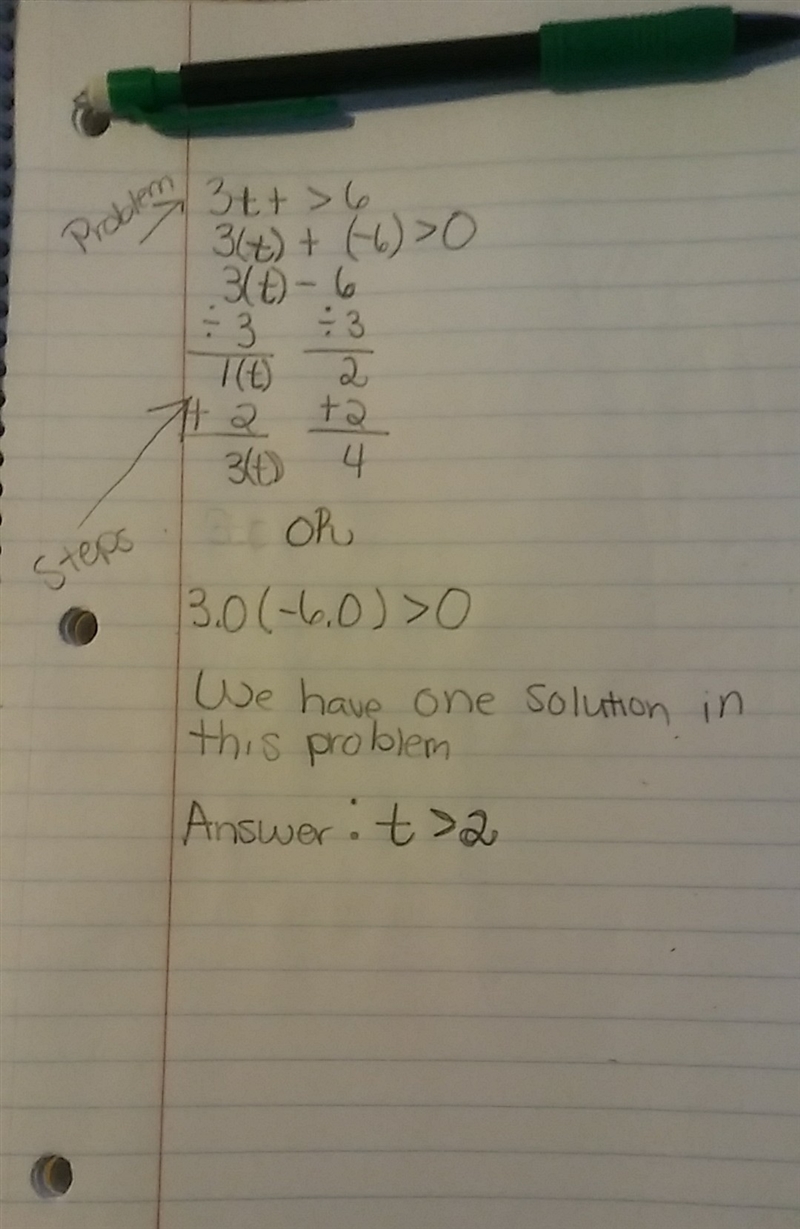 Problem
3t+ > 6
3(t) + (-6) >0
3(t) - 6
÷ 3 ÷ 3
1(t) 2
+ 2 +2
3(t) 4
Steps
OR
3.0(-6.0) >0
We have one solution in
this problem
Answer: t >2